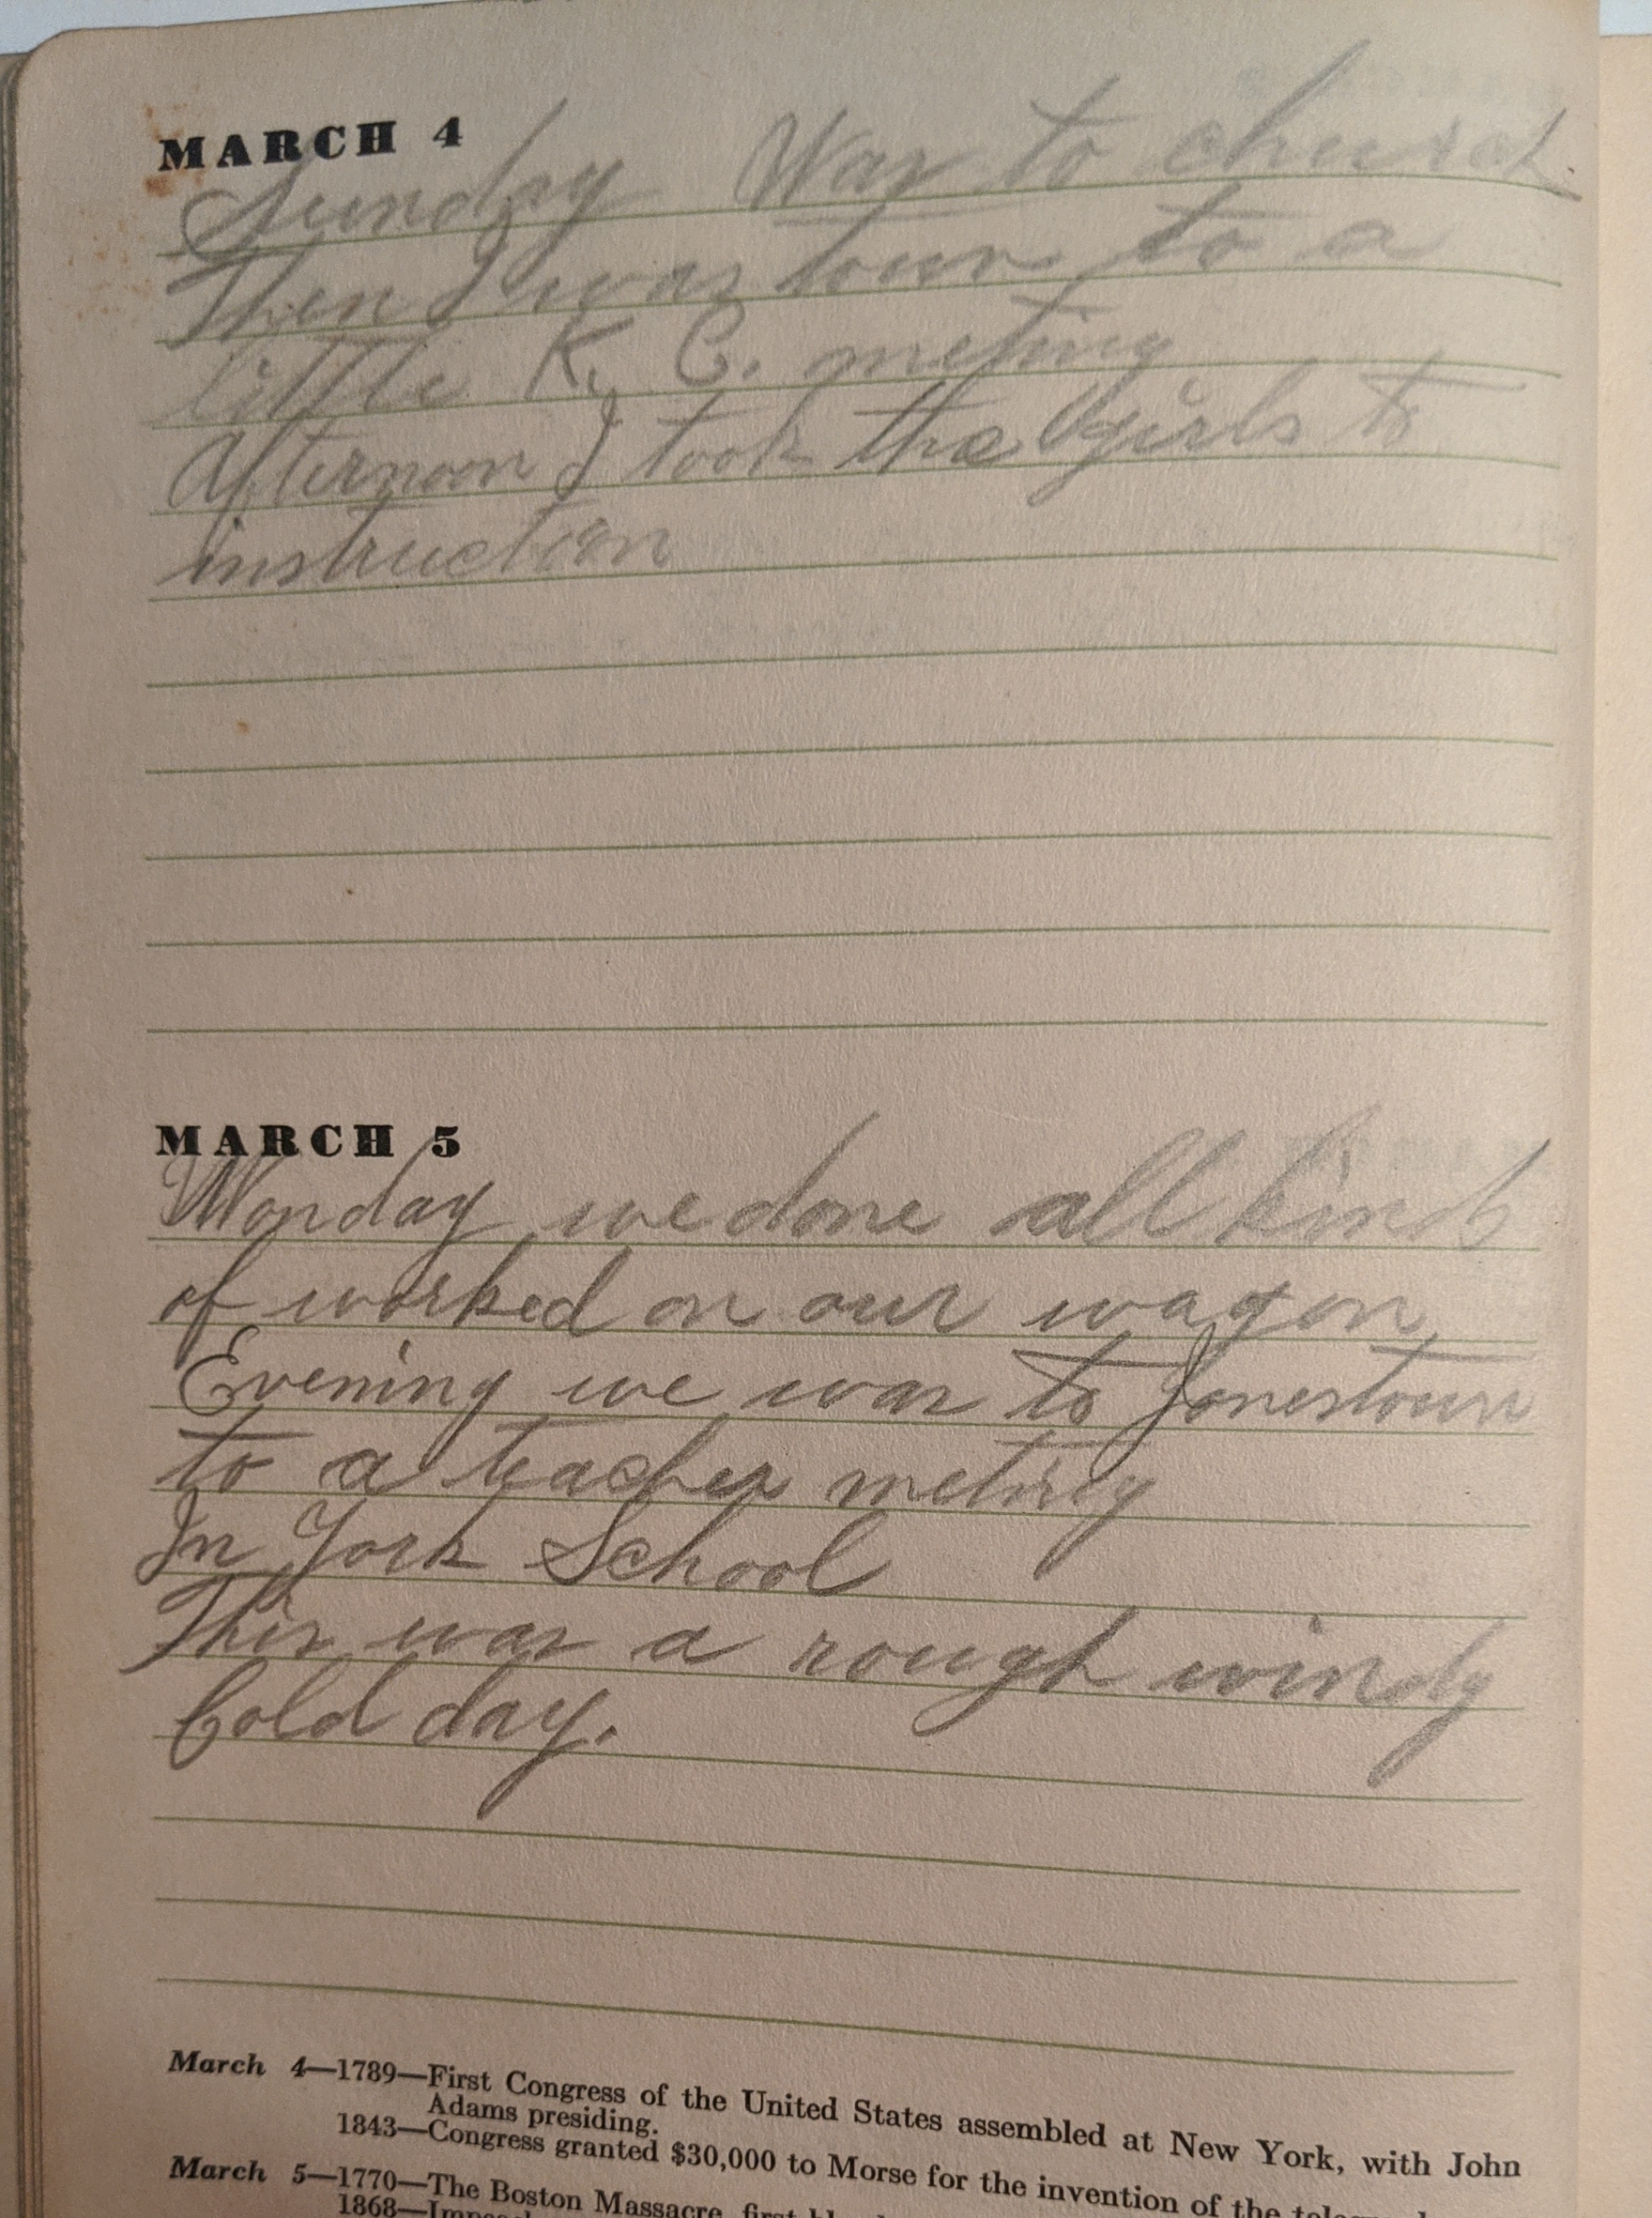 MARCH 4
Sunday Was to church
Then I was town to a
little K. C. meting
Afternoon I took the girls to
instruction
MARCH 5
Monday we done all kinds
of worked on our wagon,
Evening we was to Jonestown
to a teacher meting
In York School
This was a rough windy
Cold day.
March 4—1789—First Congress of the United States assembled at New York, with John
Adams presiding.
1843—Congress granted $30,000 to Morse for the invention of the
March 5—1770—The Boston Massacre, first
1868—